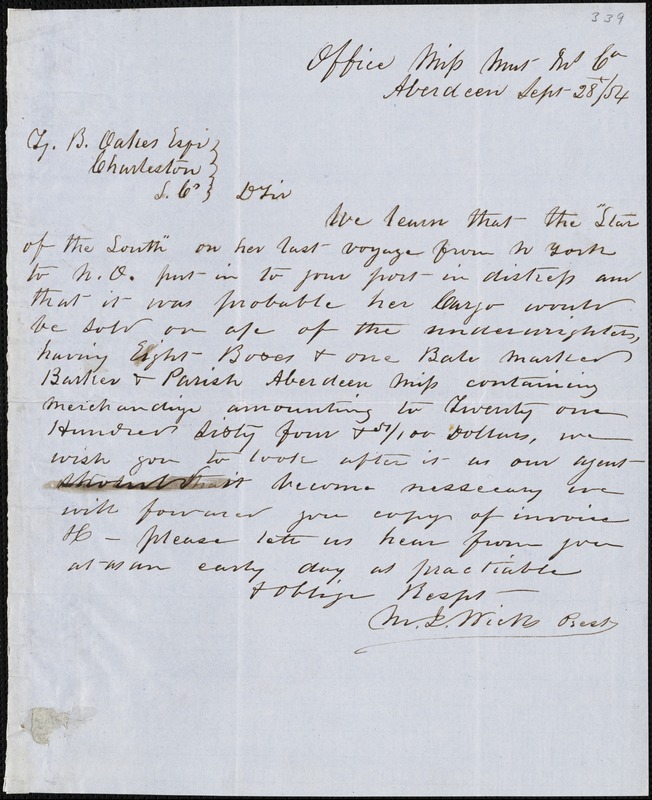 339
Office Miss Mut Ins Co
Aberdeen Sept 28/54
Z. B. Oakes Esqr
Charleston
S. Ca D Sir
We learn that the "Star
of the South" on her last voyage from N York
to N.O. put in to your port in distress and
that it was probable her Cargo would
be sold on a/c of the underwrighters,
having Eight Boxes & one Bale marked
Barker & Parish Aberdeen Miss containing
merchandize amounting to Twenty one
Hundred Sixty four & 51/100 Dollars, we
wish you to look after it as our agent
should it become nessecary we
will forward you copy of invoice
&c - please let us hear from you
at as an early day as practiable
& Oblige Respt
M. J. Wicks Prest